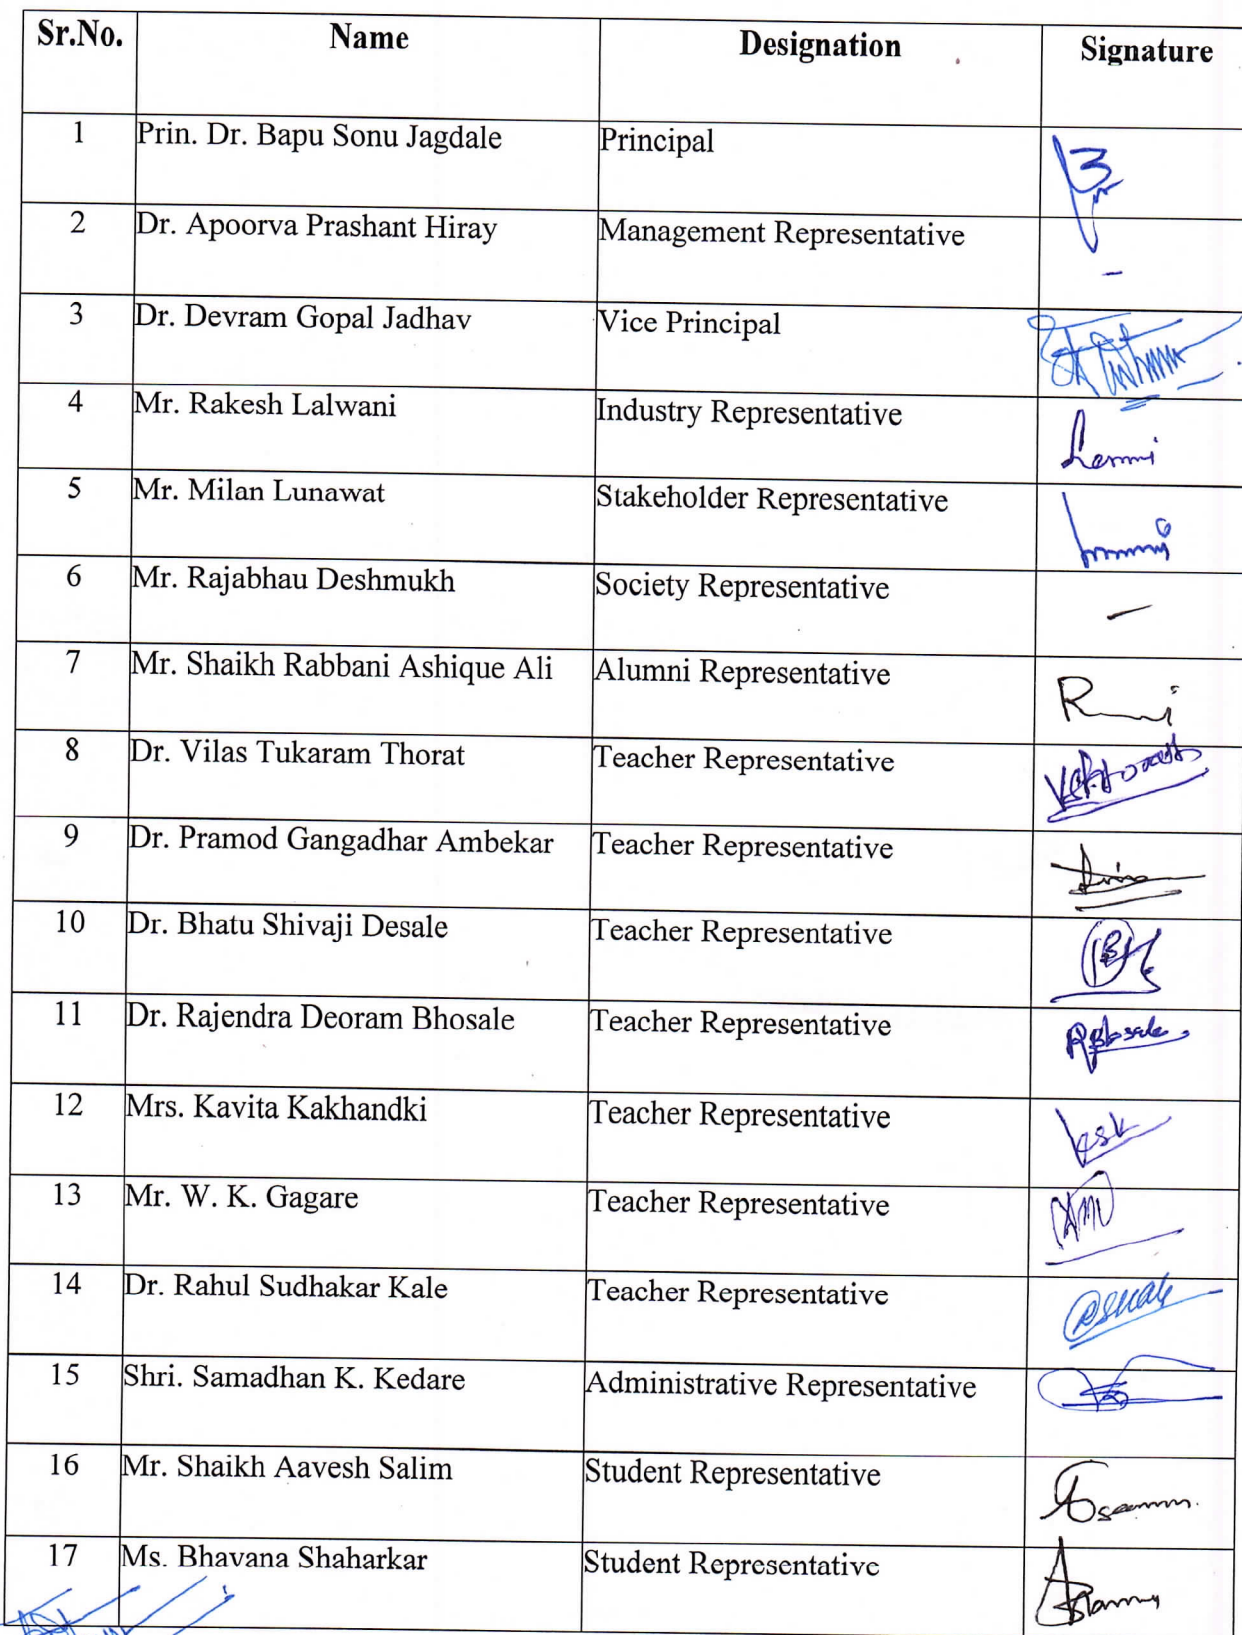 Sr.No. Name Designation Signature
1 Prin. Dr. Bapu Sonu Jagdale Principal
2 Dr. Apoorva Prashant Hiray Management Representative -
3 Dr. Devram Gopal Jadhav Vice Principal
4 Mr. Rakesh Lalwani Industry Representative
5 Mr. Milan Lunawat Stakeholder Representative
6 Mr. Rajabhau Deshmukh Society Representative -
7 Mr. Shaikh Rabbani Ashique Ali Alumni Representative
8 Dr. Vilas Tukaram Thorat Teacher Representative
9 Dr. Pramod Gangadhar Ambekar Teacher Representative
10 Dr. Bhatu Shivaji Desale Teacher Representative
11 Dr. Rajendra Deoram Bhosale Teacher Representative
12 Mrs. Kavita Kakhandki Teacher Representative
13 Mr. W. K. Gagare Teacher Representative
14 Dr. Rahul Sudhakar Kale Teacher Representative
15 Shri. Samadhan K. Kedare Administrative Representative
16 Mr. Shaikh Aavesh Salim Student Representative
17 Ms. Bhavana Shaharkar Student Representative